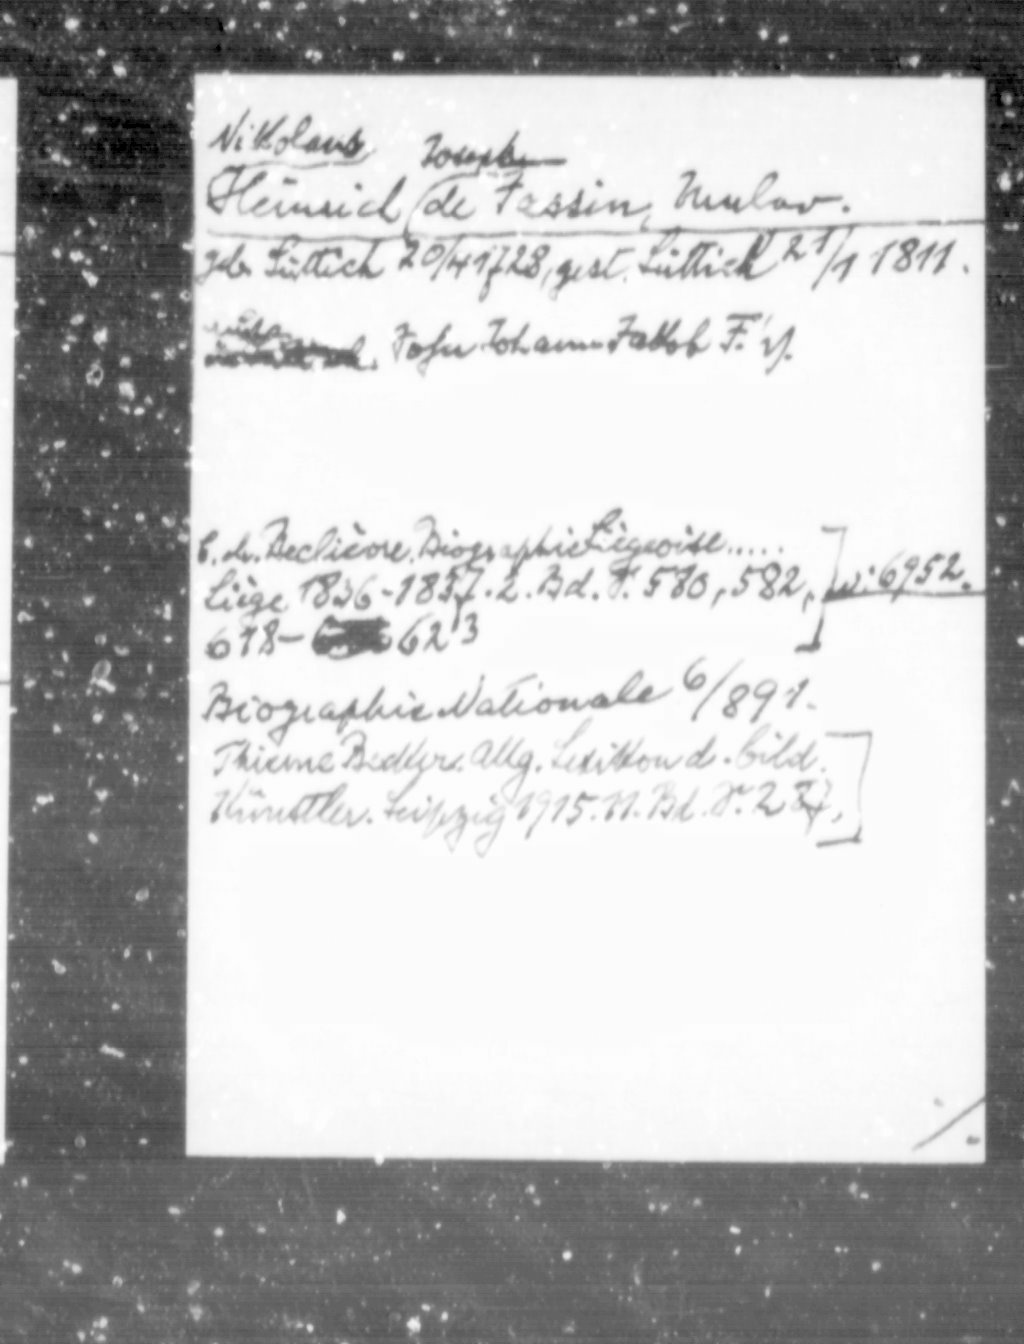 Nikolaus Joseph
Heinrich (de Fassin, Maler.
geb. Lüttich 20/4 1728, gest. Lüttich 21/1 1811.
Sohn Johann Jakob F.'s.
C. de. Becliévre. Biographie Liégeoise.....
Liège 1836-1837. 2. Bd. S. 580, 582,] s: 6952.
618- 623
Biographie Nationale 6/891.
Thieme Becker. Allg. Lexikon d. bild.
Künstler. Leipzig 1915. 11. Bd. S. 287.]